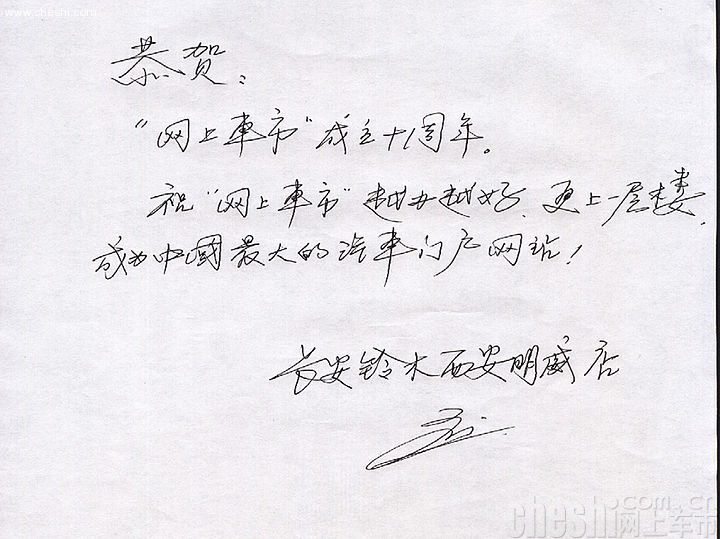 www.cheshi.com
恭贺：
“网上車市”成立十1周年。
祝“网上車市”越办越好、更上一层楼，
成为中國最大的汽車门户网站！
长安铃木西安明威店
cheshi.com.cn
网上车市